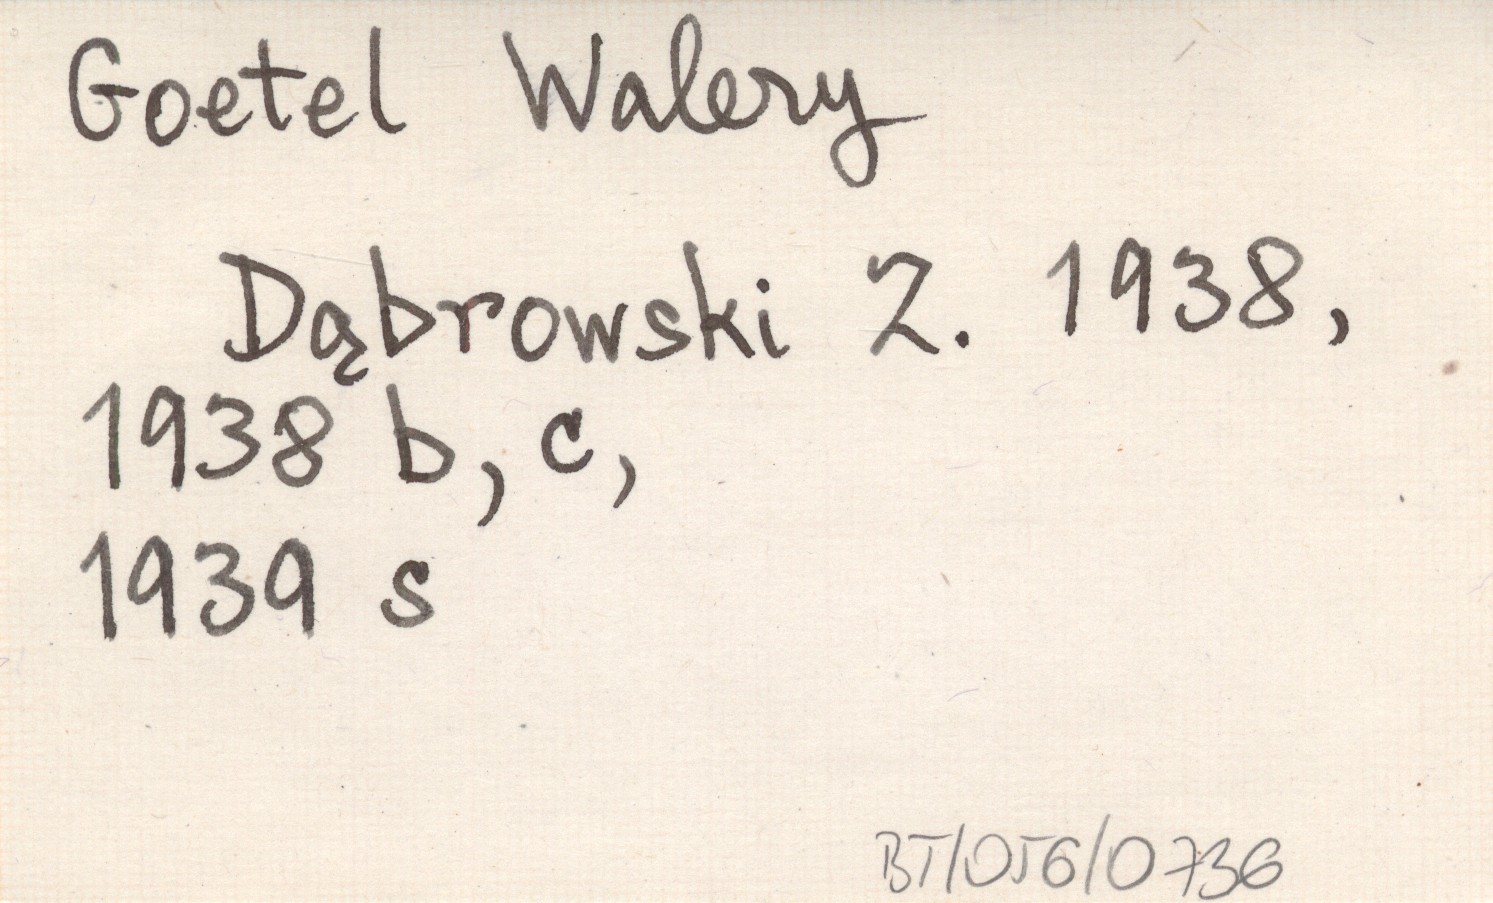 Goetel Walery
Dąbrowski Z. 1938,
1938 b, c,
1939 s
BT/056/0736